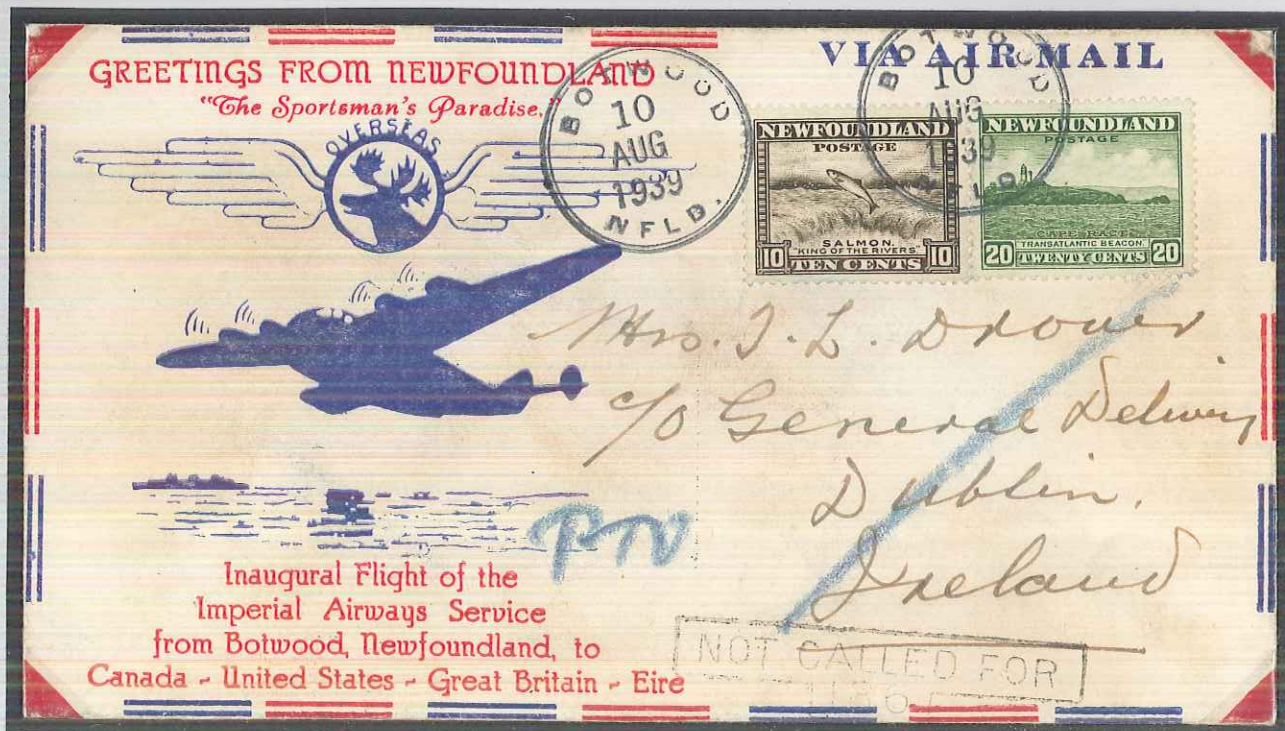 GREETINGS FROM NEWFOUNDLAND
"The Sportsman's Paradise."
OVERSEAS
BOTWOOD
10
AUG
1939
NFLD.
VIA AIR MAIL
BOTWOOD
10
AUG
1939
NFLD
NEWFOUNDLAND
POSTAGE
SALMON.
"KING OF THE RIVERS"
10 TEN CENTS 10
NEWFOUNDLAND
POSTAGE
CAPE RACE
TRANSATLANTIC BEACON.
20 TWENTY CENTS 20
Mrs. J. L. Drover
c/o General Delivery
Dublin.
Ireland
Inaugural Flight of the
Imperial Airways Service
from Botwood, Newfoundland, to
Canada - United States - Great Britain - Eire
NOT CALLED FOR